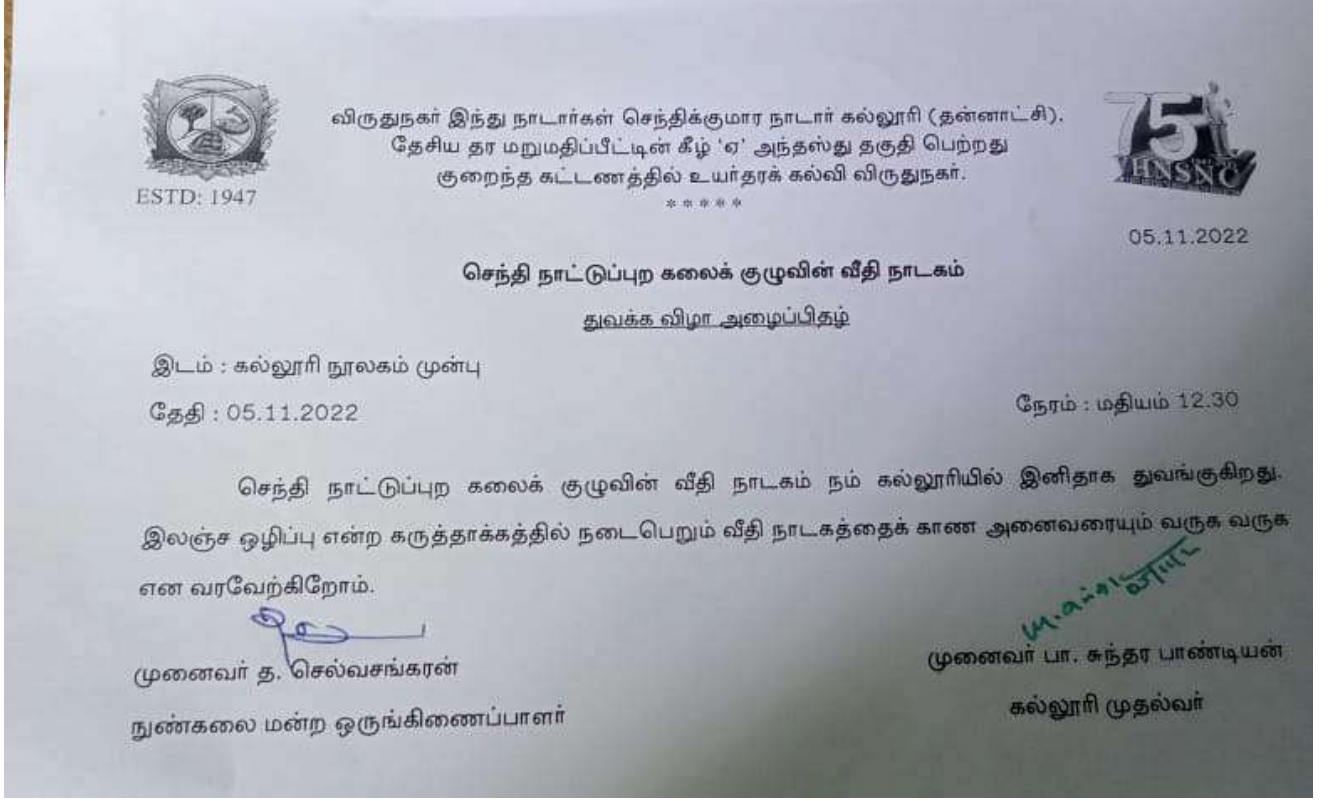 விருதுநகர் இந்து நாடார்கள் செந்திக்குமார நாடார் கல்லூரி (தன்னாட்சி).
தேசிய தர மறுமதிப்பீட்டின் கீழ் 'ஏ' அந்தஸ்து தகுதி பெற்றது
குறைந்த கட்டணத்தில் உயர்தரக் கல்வி விருதுநகர்.
*****
ESTD: 1947
75
VHNSNC
05.11.2022
செந்தி நாட்டுப்புற கலைக் குழுவின் வீதி நாடகம்
துவக்க விழா அழைப்பிதழ்
இடம் : கல்லூரி நூலகம் முன்பு
தேதி : 05.11.2022
நேரம் : மதியம் 12.30
செந்தி நாட்டுப்புற கலைக் குழுவின் வீதி நாடகம் நம் கல்லூரியில் இனிதாக துவங்குகிறது.
இலஞ்ச ஒழிப்பு என்ற கருத்தாக்கத்தில் நடைபெறும் வீதி நாடகத்தைக் காண அனைவரையும் வருக வருக
என வரவேற்கிறோம்.
முனைவர் த. செல்வசங்கரன்
நுண்கலை மன்ற ஒருங்கிணைப்பாளர்
முனைவர் பா. சுந்தர பாண்டியன்
கல்லூரி முதல்வர்